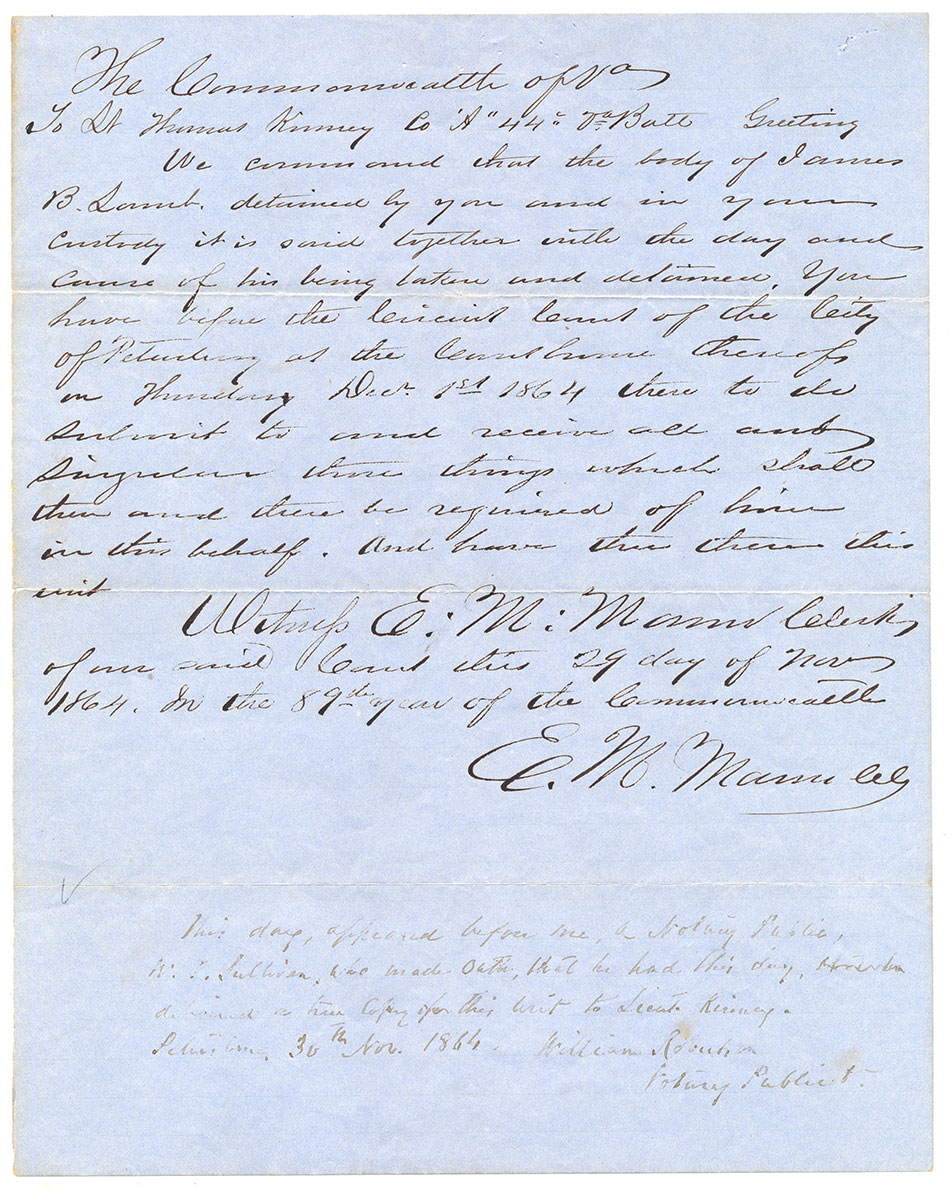 The Commonwealth of Va
To Lt Thomas Kinney Co "A" 44" Va Batt Greeting
We command that the body of James
B. Lamb. detained by you and in your
custody it is said together with the day and
cause of his being taken and detained, You
have before the Circuit Court of the City
of Petersburg at the Courthouse thereof
on Thursday Decr. 1st 1864 there to do
submit to and receive all and
singular those things which shall
then and there be required of him
in this behalf. And have then there this
writ
Witness E: M: Mann Clerk
of our said Court this 29 day of Nov
1864. In the 89th year of the Commonwealth
E. M. Mann Clk
This day, appeared before me, a Notary Public,
W. T. Sullivan, who made oath, that he had this day,
delivered a true Copy of this writ to Lieut Kinney.
Petersburg 30th Nov. 1864. William
Notary Public